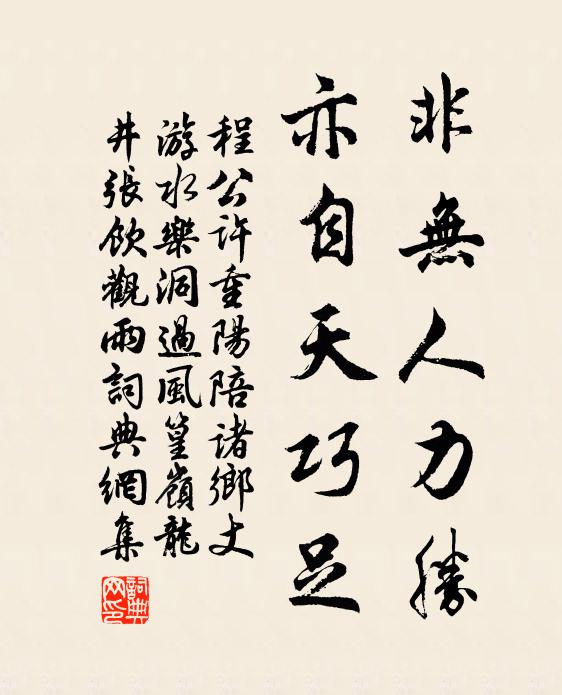 非無人力勝
亦自天巧足
程公許重陽陪諸鄉丈
游水樂洞過風篁嶺龍
井張飲觀雨詞典網集
詞典
网印